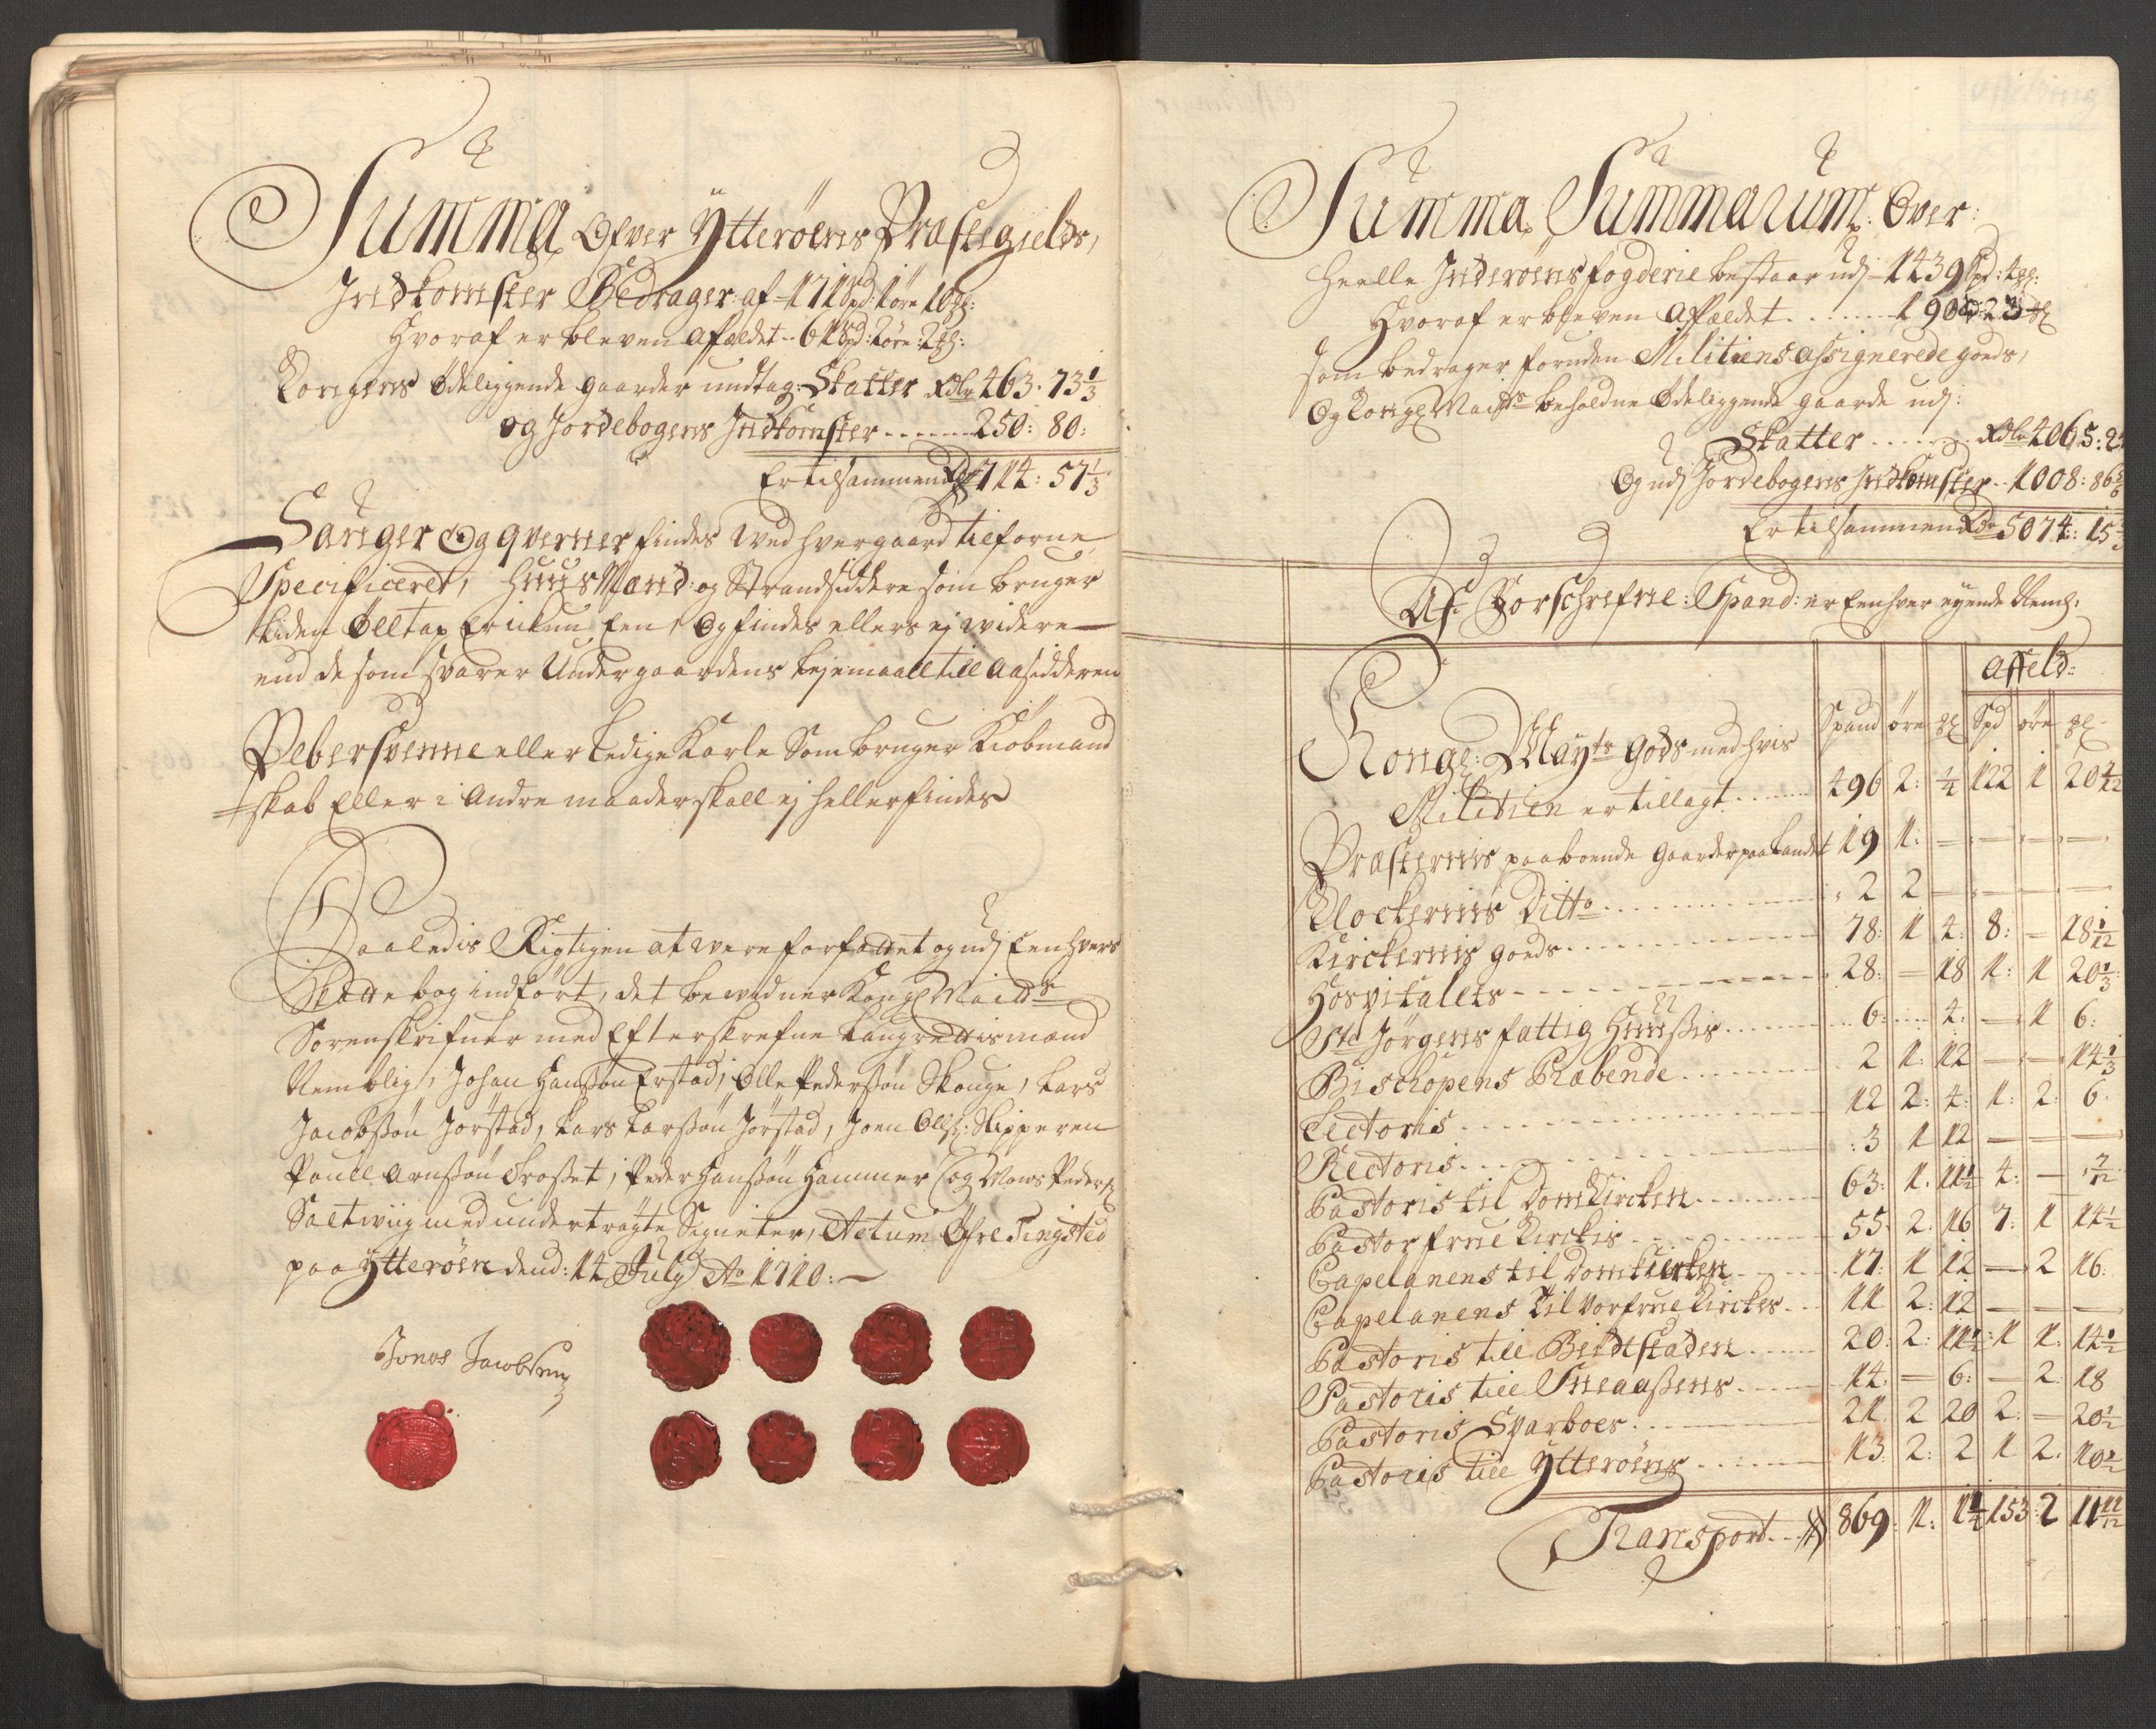 Summa Ofver Ytterøens Præstegields,
Indkomster Bedrager af 171 Spd: 1 øre 10 gl:
Hvoraf er bleven affældet - 61 Spd: 2 øre: 2 gl:
Kongens Ødeliggende gaarder undtag: Skatter Rdlr 463. 73 1/3
og Jordebogens Indkomster ...... 250: 80:
Er tilsammen Rdr 714: 57 1/3
Sauger Og qverner findes ved hver gaard tilforne
Specificeret, HuusMænd og Strandsiddere som bruger
liden Øeltap Er ickun Een, Og findes ellers ej widere
end de som svarer Under gaardens lejemaall till Aasidderen
Pebersvenne eller Ledige Karle Som bruger Kiøbmand
skab Eller i Andre maader skall ej heller findes
Saaledis Rigtigen at were forfattet og udj Eenhvers
Skattebog indført, det bewidner Kongl Maits
Sorenskrifver med Efterskrefne Laugrettismænd
Nemblig, Johan Hanßøn Erstad, Olle Pederßøn Skouge, Lars
Jacobßøn Jørstad, Lars Larßøn Jørstad, Joen Ollß: Nipperen
Pouell Arnßøn Troßet, Peder Hanßøn Hammer og Mons Peders:
Saltwiig med undertrøgte Signeter, Actum Øfre Tingsted
paa Ytterøen dend: 14 July Ao 1710:
Jonas Jacobsen
Summa Summarum Over:
Heelle Inderøens fogderie bestaar udj - 1439 Spd: 4 gl:
Hvoraf er bleven Affældet ....... 190 2 3 gl
som bedrager foruden Militiens assignerede goeds,
Og Kongl Maits beholdne Ødeliggende gaarde udj:
Skatter ...... Rdlr 4065: 2
Og udj Jordebogens Indkomster .. 1008: 86 5/6
Er tilsammen Rdr 5074: 15
Af Forschrefne: Spand: er Eenhver eyende Neml:
Affeld:
Spand øre gl Spd øre gl
Kongl: Mayts Gods med hvis
Militien er tillagt ...... 496 2: 1/4 122 1 20 4/12
Præsternis paaboende gaarder paa Landet 19 1: — — — —
Klockernis Ditto ........ 2 2 — — — —
Kirckernis goeds ........ 78: 1 4: 8: — 18 1/12
Hospitalets ........ 28: — 18 1: 1 20 1/3
Sta Jørgens fattig Huußis ...... 6: 4: — 1 6:
Bischopens Præbende ...... 2 1: 12 — — 14 1/3
Lectoris ........ 12 2: 4: 1: 2: 6.
Rectoris ........ 3 1 12 — — —
Pastoris til Domkircken ...... 63: 1. 11 1/2 4: — 7/12
Pastor frue Kirckis ...... 55 2. 16 7: 1 14 1/2
Capelanens til Domkircken ...... 17: 1 12 — 2 16:
Capelanens til Vor frue Kirckes ... 11 2: 12 — — —
Pastoris till Beidtstaden ...... 20: 2: 11 1/2 1 1: 14 1/2
Pastoris till Sneaaßens ...... 14: — 6: — 2. 18
Pastoris Sparboes ...... 21. 2 20 2: — 20 1/2
Pastoris till Ytterøens ...... 13 2: 2 1 2. 10 1/2
Transport ... 869: 1: 1 1/4 153: 2 11 11/12